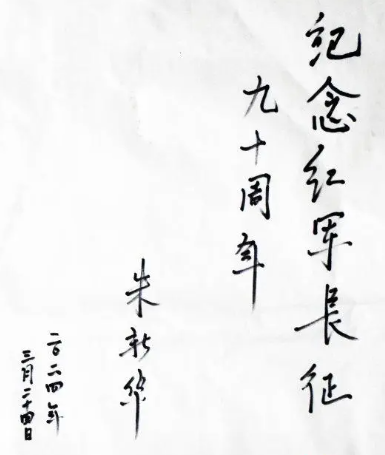 纪念红军长征
九十周年
朱新华
二〇二四年
三月二十四日